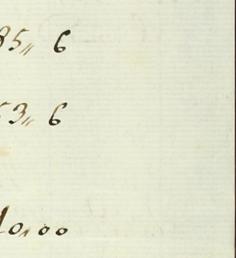 85,, 6
53,, 6
10,00